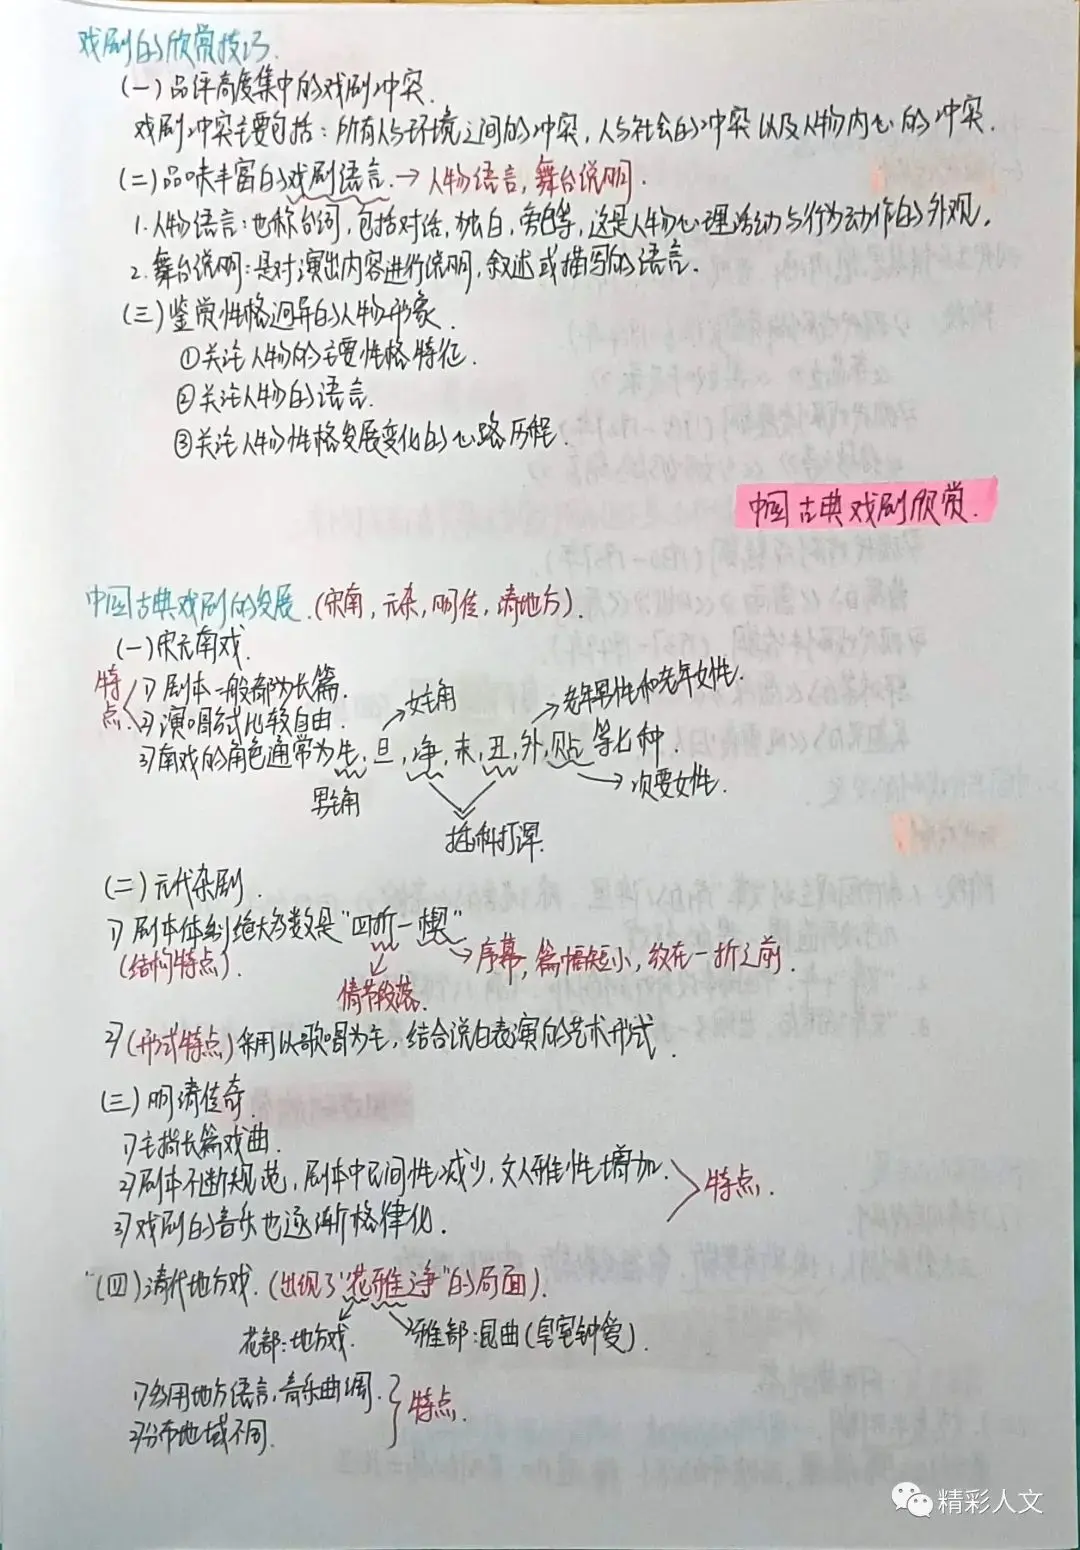 戏剧的欣赏技巧.
(一)品评高度集中的戏剧冲突.
戏剧冲突主要包括：所有人与环境之间的冲突，人与社会的冲突以及人物内心的冲突.
(二)品味丰富的戏剧语言.→人物语言,舞台说明.
1.人物语言:也称台词,包括对话,独白,旁白等,这是人物心理活动与行为动作的外观.
2.舞台说明:是对演出内容进行说明,叙述或描写的语言.
(三)鉴赏性格迥异的人物形象.
①关注人物的主要性格特征.
②关注人物的语言.
③关注人物性格发展变化的心路历程.
中国古典戏剧欣赏.
中国古典戏剧的发展.(宋南,元杂,明传,清地方).
(一)宋元南戏.
特点
1)剧本一般都为长篇.
2)演唱方式比较自由.
女主角
老年男性和老年女性.
3)南戏的角色通常为生,旦,净,末,丑,外,贴等七种.
男主角
次要女性.
插科打诨.
(二)元代杂剧.
1)剧本体制绝大多数是"四折一楔"
(结构特点).
序幕,篇幅短小,放在一折之前.
情节段落.
2)(形式特点)采用以歌唱为主,结合说白表演的艺术形式.
(三)明清传奇.
1)主指长篇戏曲.
2)剧本不断规范,剧本中民间性减少,文人雅性增加.
特点.
3)戏剧的音乐也逐渐格律化.
(四)清代地方戏.(出现了"花雅之争"的局面).
花部:地方戏.
雅部:昆曲(皇室钟爱).
1)多用地方语言,音乐曲调.
特点.
2)分布地域不同.
精彩人文